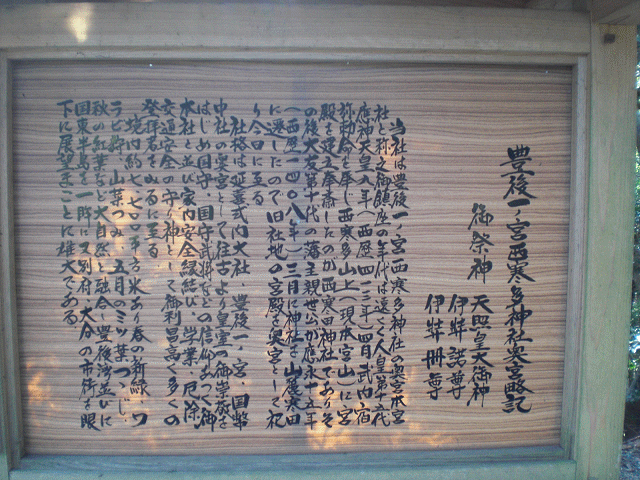 豊後一ノ宮西寒多神社奥宮略記
御祭神
天照皇大御神
伊弉諾尊
伊弉冊尊
当社は豊後一ノ宮西寒多神社の奥宮本宮
社と称え御鎮座の年代は遠く人皇第十五代
応神天皇八年(西歴四一三年)四月武内宿
祢勅命を奉じ西寒多山上(現本宮山)に宮
殿を建立奉斎したのが西寒田神社でありそ
の後大友第十代の藩主親世公が応永十五年
(西歴一四〇八年)三月に神社を山麓太田
に遷したので旧社地の宮殿を奥宮として祀
り今日に至る
社格は延喜式内大社、豊後一ノ宮・国幣
中社の奥宮として往古より皇室の御崇敬を
はじめ国守・国守武将などの信仰あつく御
本社と並び家内安全縁結び、学業、厄除、
交通安全の守り神として御利益高く多くの
登拝者をみるに至る
境内約七、七〇〇平方米あり春の新緑・ワ
ラビ狩、山菜つみ、五月のミツ葉つゝじ・
秋の紅葉など大自然と融合し豊後湾並びに
国東半島を一眸に又別府、大分の市街を眼
下に展望まことに雄大である